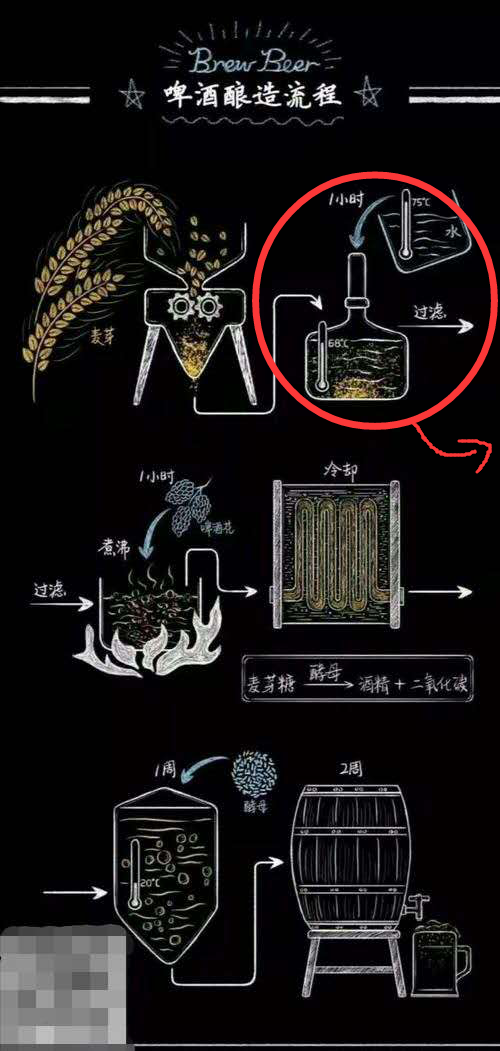 Brew Beer
啤酒酿造流程
1小时
75℃
水
麦芽
68℃
过滤
1小时
啤酒花
煮沸
过滤
冷却
麦芽糖 酵母 酒精 + 二氧化碳
1周
酵母
2周
20℃